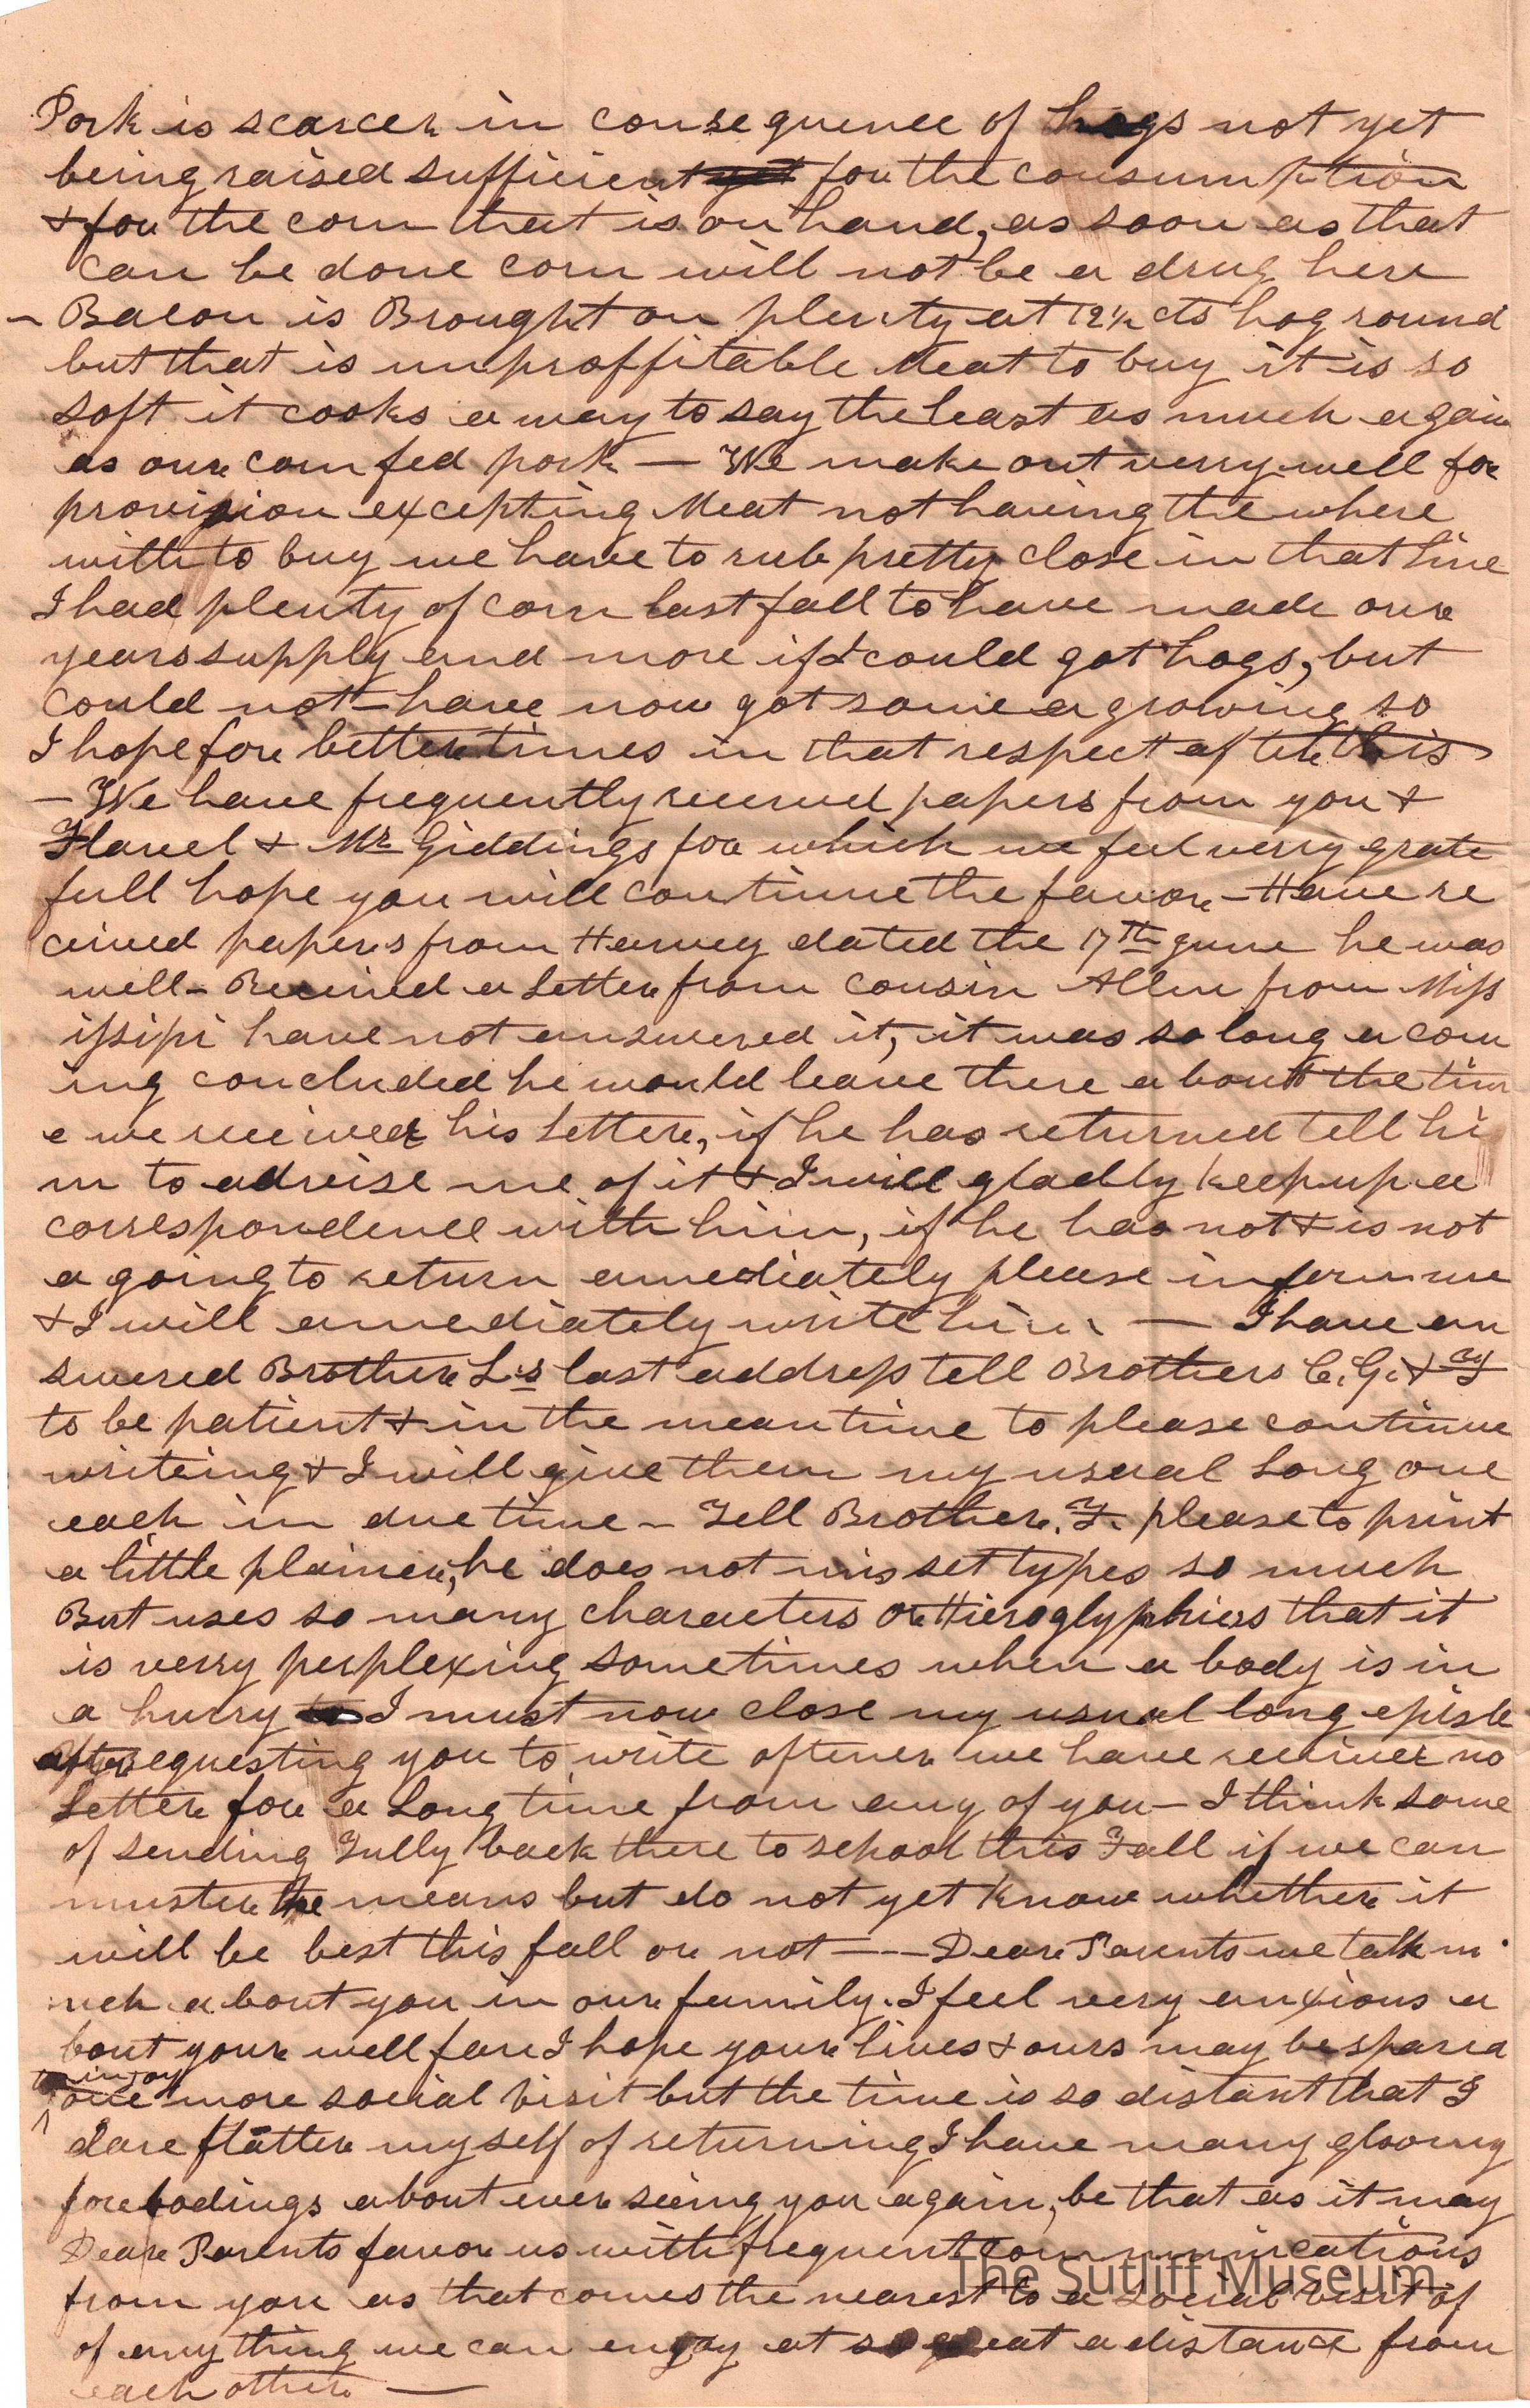 Pork is scarcer in consequence of hogs not yet
being raised sufficient yet for the consumption
& for the corn that is on hand, as soon as that
can be done corn will not be a drug here
– Bacon is Brought on plenty at 12½ cts hog round
but that is unproffitable Meat to buy it is so
soft it cooks a way to say the least as much again
as our corn fed pork — We make out verry well for
provision excepting Meat not having the where
with to buy we have to rub pretty close in that line
I had plenty of corn last fall to have made our
years supply and more if I could got hogs, but
could not – have now got some a growing so
I hope for better times in that respect after this
– We have frequently received papers from you &
Flavel & Mr. Giddings for which we feel verry grate
full hope you will continue the favor – Have re
ceived papers from Harvey dated the 17th June he was
well – Received a Letter from cousin Allen from Miss
issipi have not answered it, it was so long a com
ing concluded he would leave there about the tim
e we received his Letter, if he has returned tell hi
m to advise me of it & I will gladly keep up a
correspondence with him, if he has not & is not
a going to return amediately please inform me
& I will amediately write him — I have an
swered Brother L.s last address tell Brothers C. G. &
to be patient & in the meantime to please continue
writeing & I will give them my usual Long one
each in due time – Tell Brother. F. please to print
a little plainer, he does not mis set types so much
But uses so many characters or Hieroglyphicrs that it
is verry perplexing sometimes when a body is in
a hurry I must now close my usual long episle
after requesting you to write oftener we have received no
Letter for a Long time from any of you – I think some
of sending Tully back there to school this Fall if we can
muster the means but do not yet know whether it
will be best this fall or not —— Dear Parents we talk m
uch about you in our family. I feel very anxious a
bout your well fare I hope your lives & ours may be spared
to injoy
one more social visit but the time is so distant that I
dare flatter myself of returning I have many gloomy
forebodings about ever seeing you again, be that as it may
Dear Parents favor us with frequent communications
from you as that comes the nearest to a social visit of
of any thing we can enjoy at so great a distance from
each other —
The Sutliff Museum